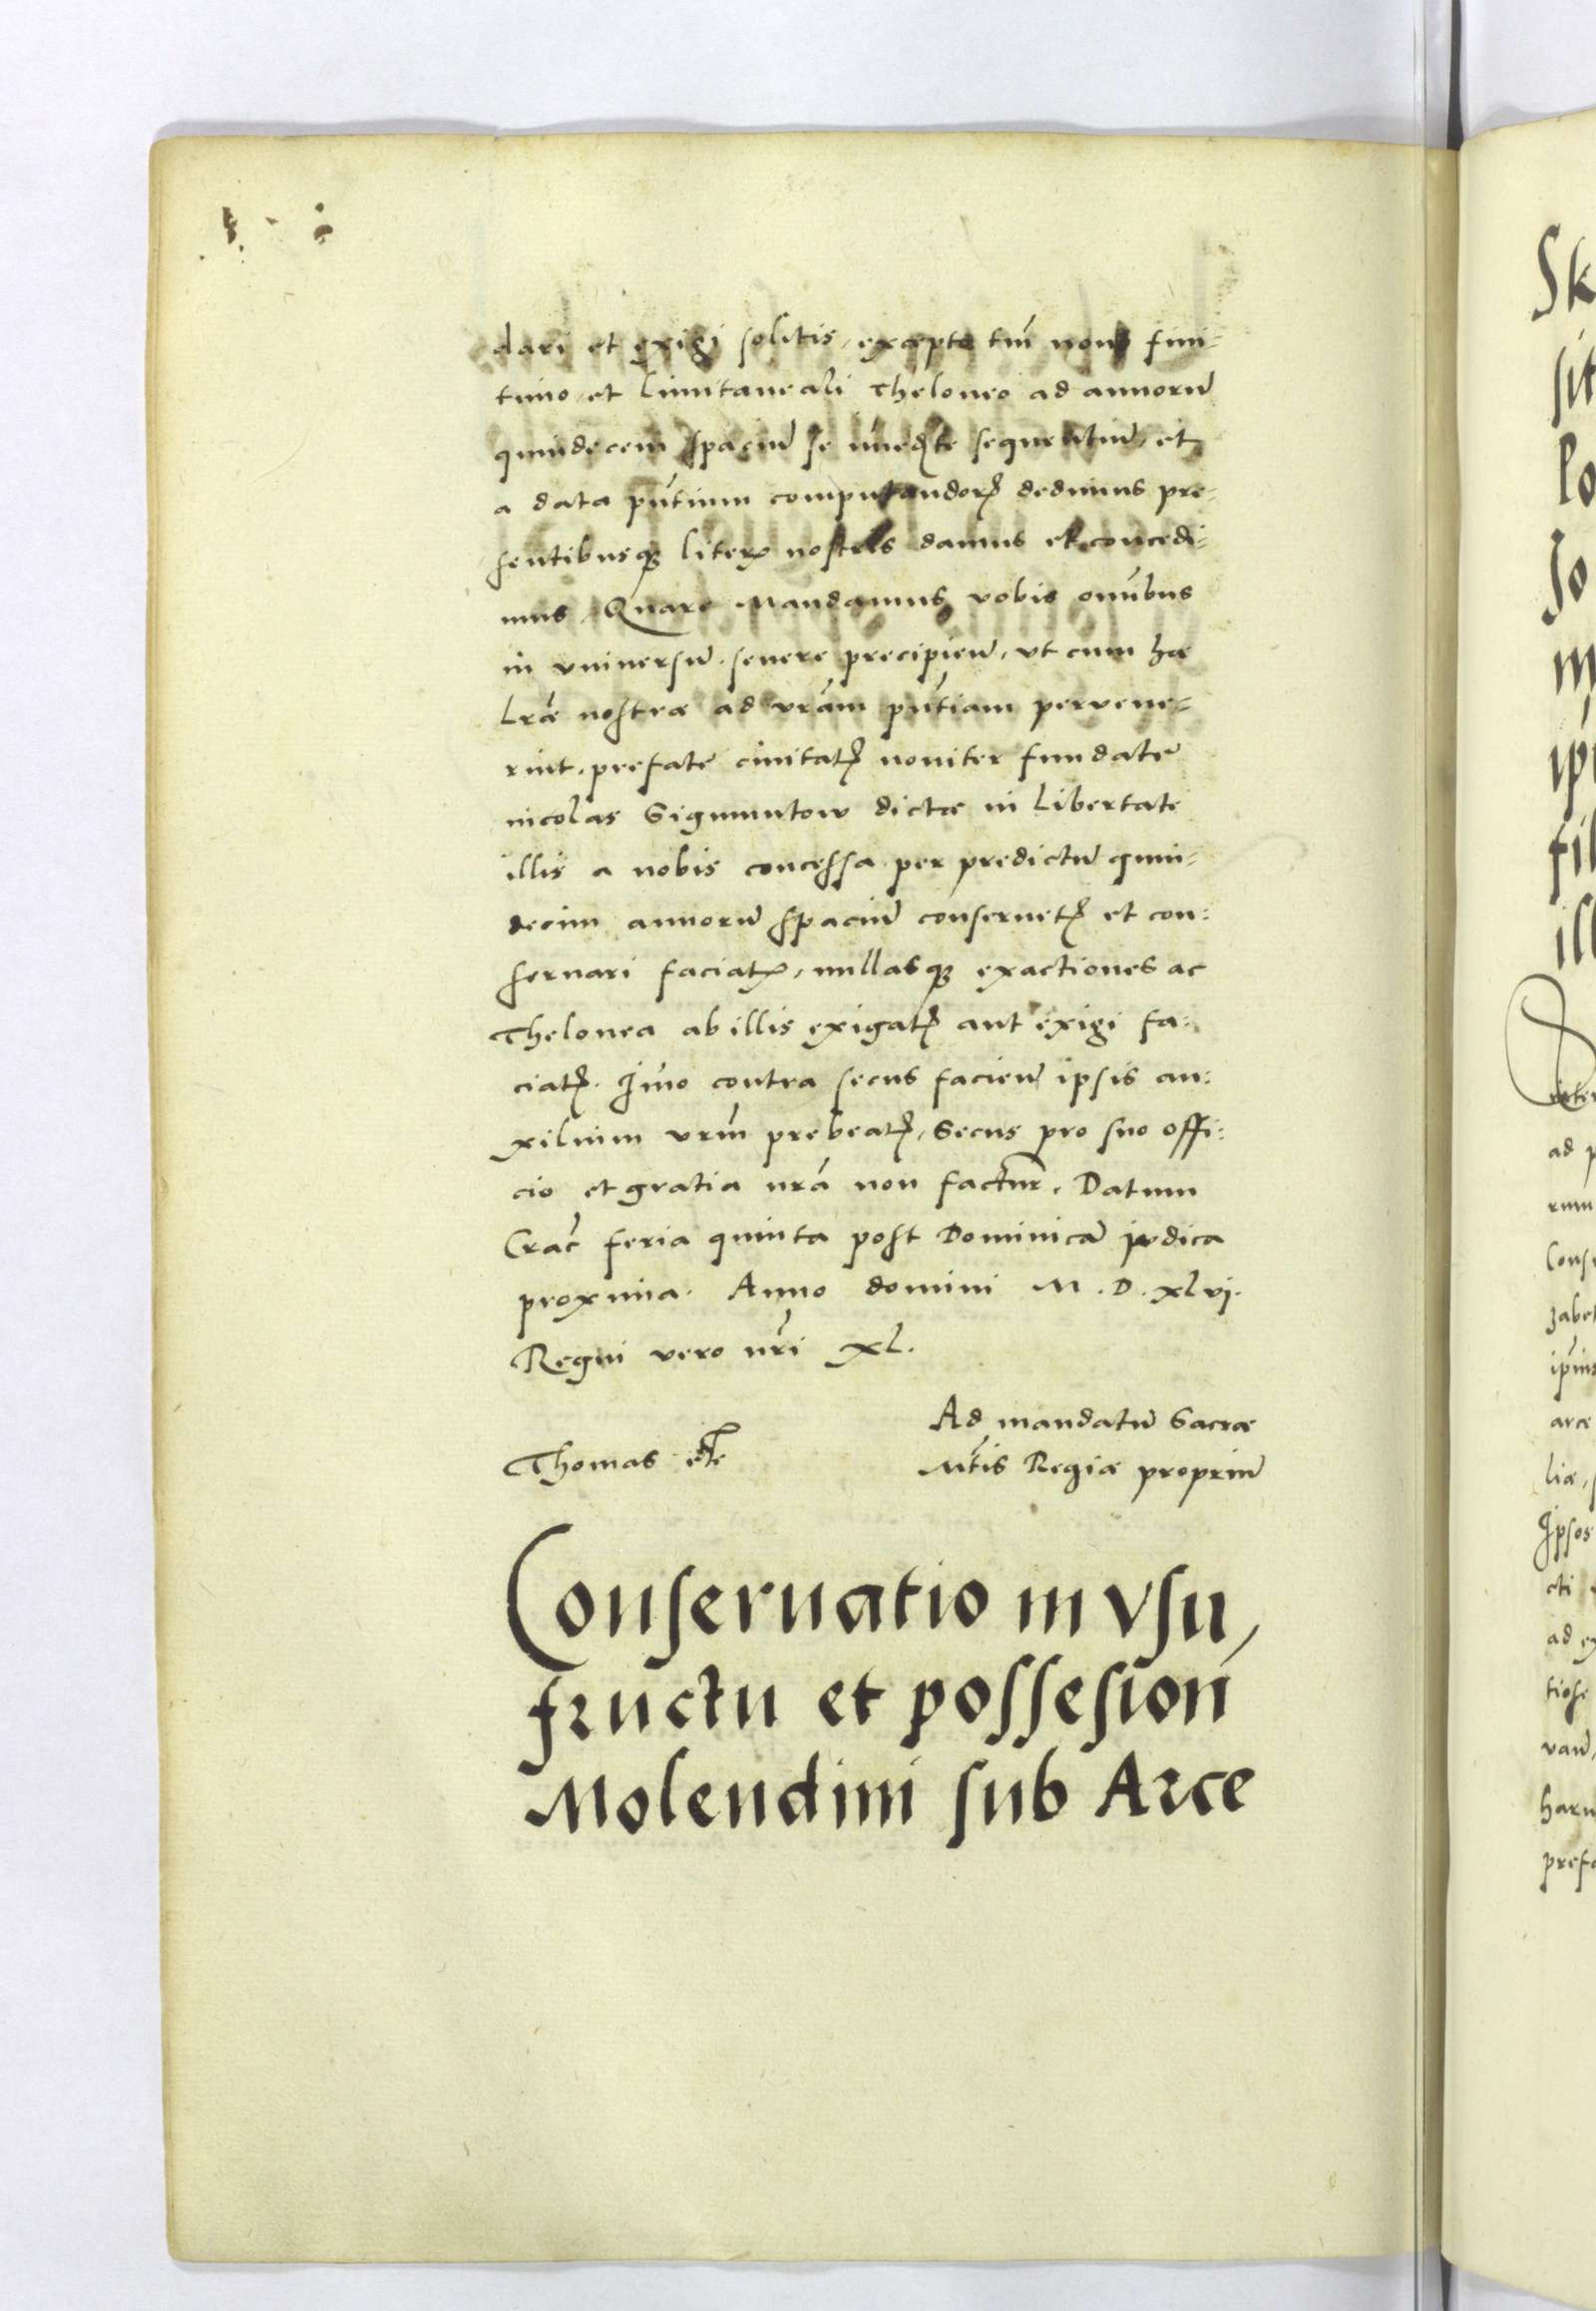 dari et exigi solitis, excepto tm̃ nouo fini-
timo et limitaneali Theloneo ad annorū
quindecem spaciū se im̃edᵗe sequentiū, et
a data pn̄tium computandorꝫ dedimus pre-
sentibusqꝫ literꝭ nostris damus et concedi-
mus, Quare Mandamus vobis om̄ibus
in vniuersū. seuere precipien̄, vt cum hæ
Lræ̃ nostræ ad vrãm pn̄tiam pervene-
rint. prefate ciuitatꝫ nouiter fundate
nicolas Sigmuntow dictæ in Libertate
illis a nobis concessa per predictū quin-
decim annorū spaciū conseruetꝫ et con-
seruari faciatꝭ, nullasqꝫ exactiones ac
Thelonea ab illis exigatꝫ aut exigi fa-
ciatꝫ. Im̃o contra secus facien̄ ipsis au-
xilium vrm̃ prebeatꝫ, Secus pro suo offi-
cio et gratia nrã non factur̃. Datum
Crac̃ feria quinta post Dominicā iudica
proxima. Anno domini M.D.xlvj.
Regni vero nri̅ XL.
Ad mandatū Sacræ
Thomas
Mt̃is Regiæ propriū
Conseruatio in vsu,
fructu et possesion̄
Molendini sub Arce
Sk
sit
lo
Jo
m
fil
ill
ad p
rum
Cons
zabet
arce
liæ,
Ipsos
cti
ad ex
harū
prefa